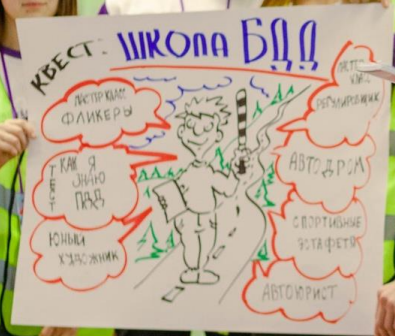 КВЕСТ: ШКОЛА БДД
МАСТЕР КЛАСС
ФЛИКЕРЫ
ТЕСТ
КАК Я
ЗНАЮ
ПДД
ЮНЫЙ
ХУДОЖНИК
РЕГУЛИРОВЩИК
АВТОДРОМ
СПОРТИВНЫЕ
ЭСТАФЕТЫ
АВТОЮРИСТ